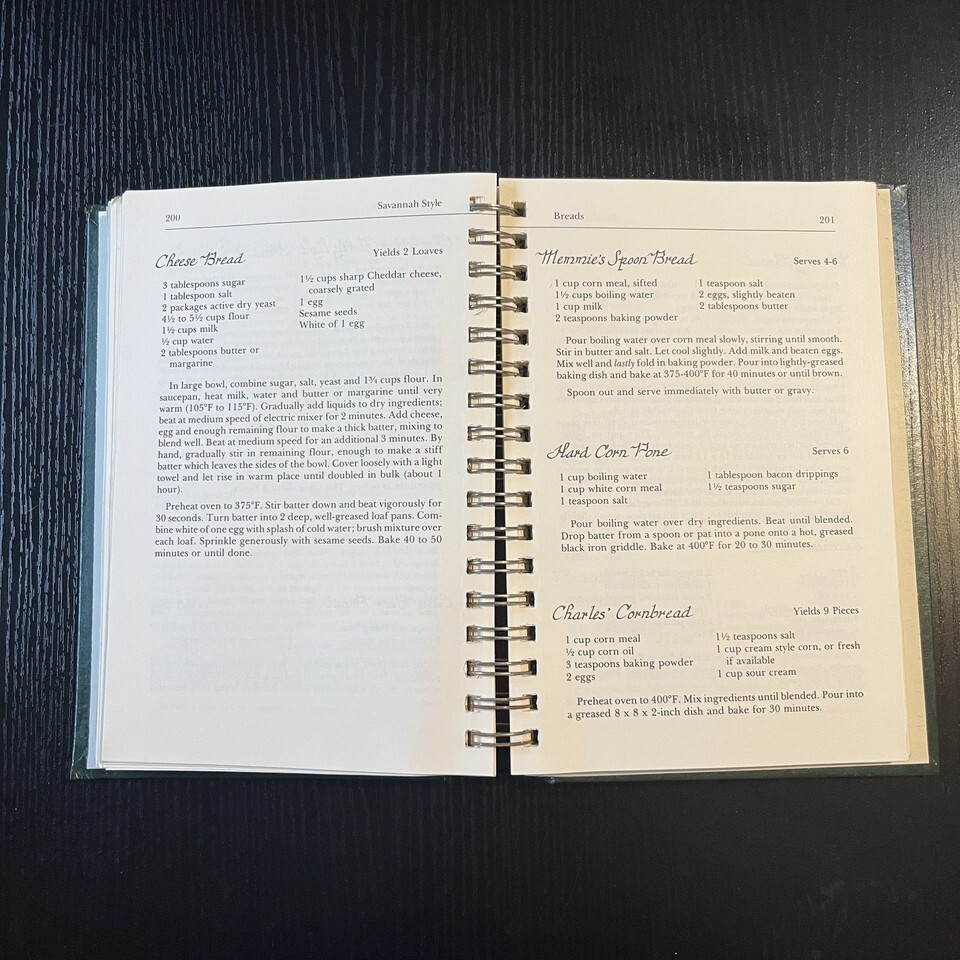 200
Savannah Style
Cheese Bread
Yields 2 Loaves
3 tablespoons sugar
1 tablespoon salt
2 packages active dry yeast
4½ to 5½ cups flour
1½ cups milk
½ cup water
2 tablespoons butter or
margarine
1½ cups sharp Cheddar cheese,
coarsely grated
1 egg
Sesame seeds
White of 1 egg
In large bowl, combine sugar, salt, yeast and 1¾ cups flour. In
saucepan, heat milk, water and butter or margarine until very
warm (105°F to 115°F). Gradually add liquids to dry ingredients;
beat at medium speed of electric mixer for 2 minutes. Add cheese,
egg and enough remaining flour to make a thick batter, mixing to
blend well. Beat at medium speed for an additional 3 minutes. By
hand, gradually stir in remaining flour, enough to make a stiff
batter which leaves the sides of the bowl. Cover loosely with a light
towel and let rise in warm place until doubled in bulk (about 1
hour).
Preheat oven to 375°F. Stir batter down and beat vigorously for
30 seconds. Turn batter into 2 deep, well-greased loaf pans. Com-
bine white of one egg with splash of cold water; brush mixture over
each loaf. Sprinkle generously with sesame seeds. Bake 40 to 50
minutes or until done.
Breads
201
Memmie's Spoon Bread
Serves 4-6
1 cup corn meal, sifted
1½ cups boiling water
1 cup milk
2 teaspoons baking powder
1 teaspoon salt
2 eggs, slightly beaten
2 tablespoons butter
Pour boiling water over corn meal slowly, stirring until smooth.
Stir in butter and salt. Let cool slightly. Add milk and beaten eggs.
Mix well and lastly fold in baking powder. Pour into lightly-greased
baking dish and bake at 375-400°F for 40 minutes or until brown.
Spoon out and serve immediately with butter or gravy.
Hard Corn Pone
Serves 6
1 cup boiling water
1 cup white corn meal
1 teaspoon salt
1 tablespoon bacon drippings
1½ teaspoons sugar
Pour boiling water over dry ingredients. Beat until blended.
Drop batter from a spoon or pat into a pone onto a hot, greased
black iron griddle. Bake at 400°F for 20 to 30 minutes.
Charles' Cornbread
Yields 9 Pieces
1 cup corn meal
½ cup corn oil
3 teaspoons baking powder
2 eggs
1½ teaspoons salt
1 cup cream style corn, or fresh
if available
1 cup sour cream
Preheat oven to 400°F. Mix ingredients until blended. Pour into
a greased 8 x 8 x 2-inch dish and bake for 30 minutes.